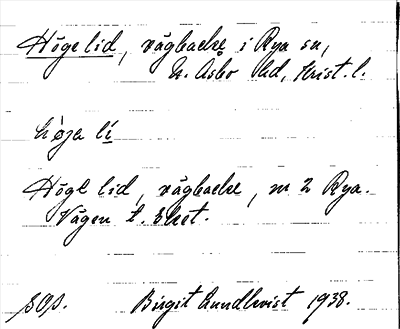 Högelid, vägbacke i Rya sn,
N. Åsbo hd, Krist. l.
höja lí
Höge lid, vägbacke, nr 2 Rya.
Vägen t. Ehet.
SOp. Birgit Lundkvist 1938.